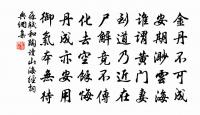 金丹不可成
安期渺雲海
誰謂黃門妻
至道乃近在
尸解竟不傳
化去空餘悔
丹成亦安用
御氣本無待
蘇軾和陶讀山海經詞
典網集